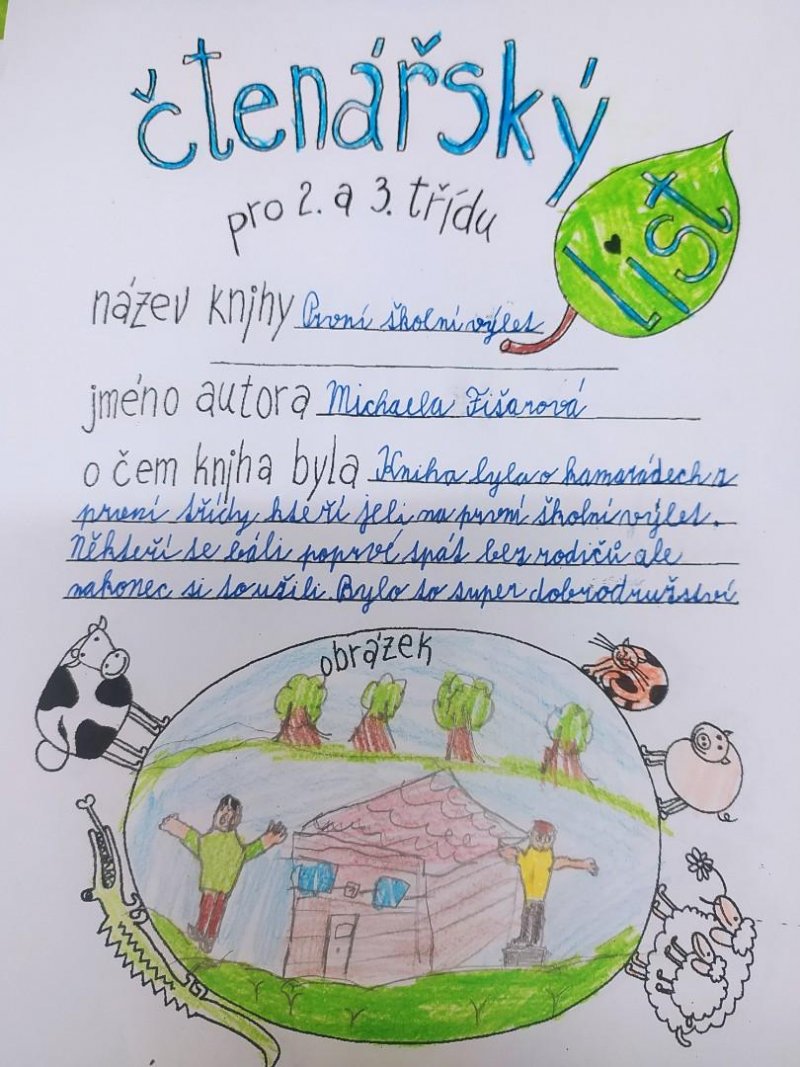 čtenářský
list
pro 2. a 3. třídu
název knihy První školní výlet
jméno autora Michaela Fišarová
o čem kniha byla Kniha byla o kamarádech z
první třídy kteří jeli na první školní výlet.
Někteří se báli poprvé spát bez rodičů ale
nakonec si to užili. Bylo to super dobrodružství
obrázek